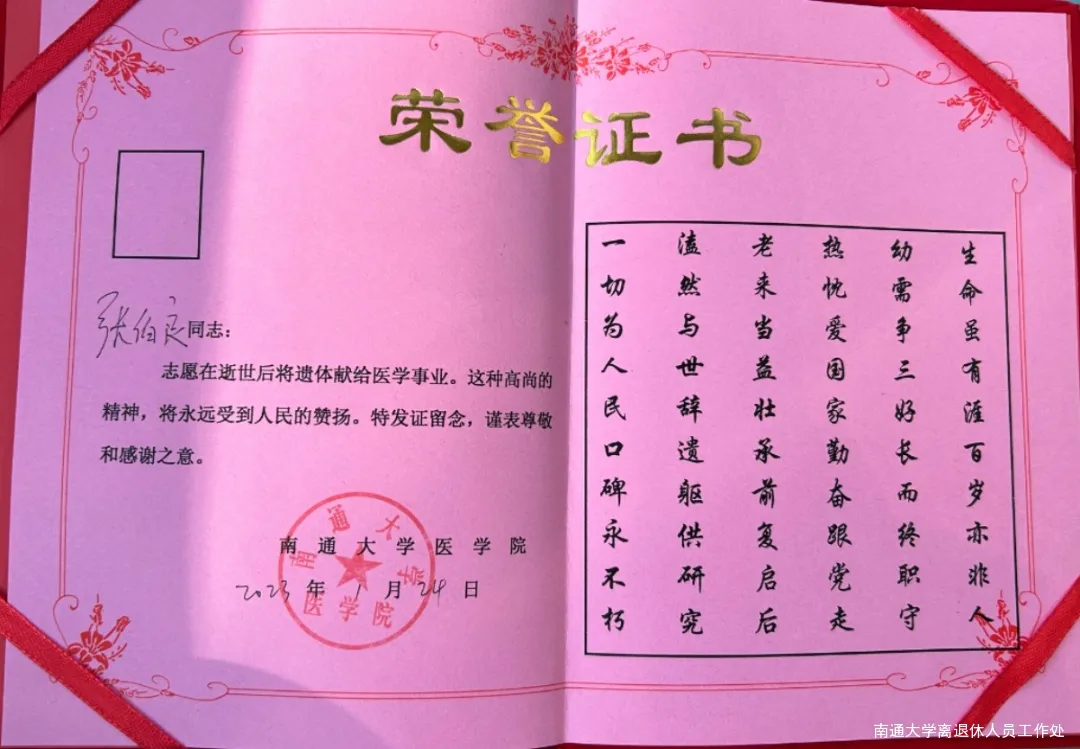 荣誉证书
张伯良同志:
志愿在逝世后将遗体献给医学事业。这种高尚的
精神，将永远受到人民的赞扬。特发证留念，谨表尊敬
和感谢之意。
南通大学医学院
2023年1月24日
南通大学
医学院
生命虽有涯百岁亦非久
幼需争三好长而终职守
热忱爱国家勤奋跟党走
老来当益壮承前复启后
溘然与世辞遗躯供研究
一切为人民口碑永不朽
南通大学离退休人员工作处